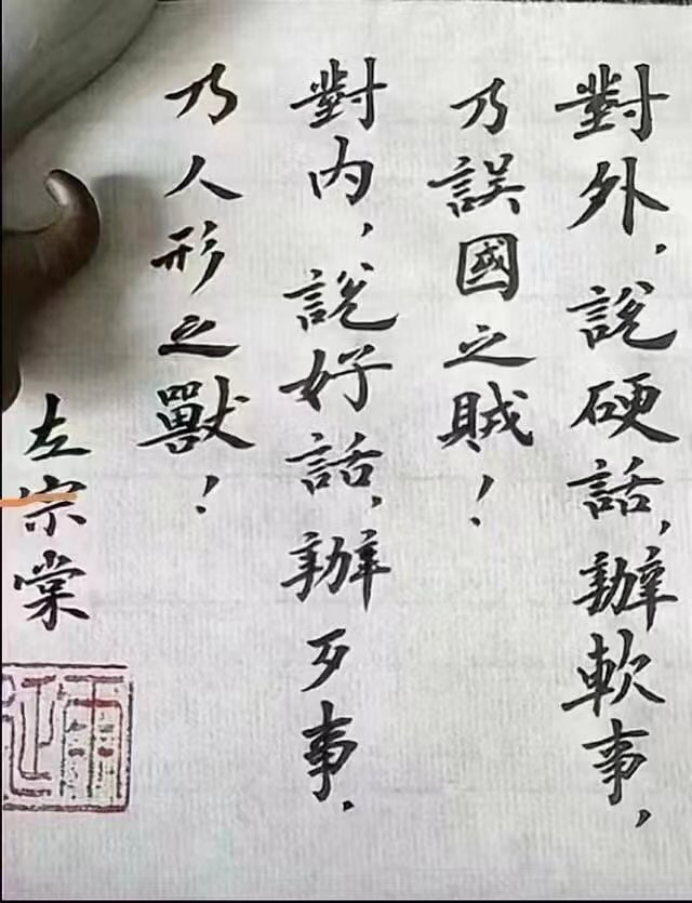 對外，說硬話，辦軟事，
乃誤國之賊！
對內，說好話，辦歹事．
乃人形之獸！
左宗棠